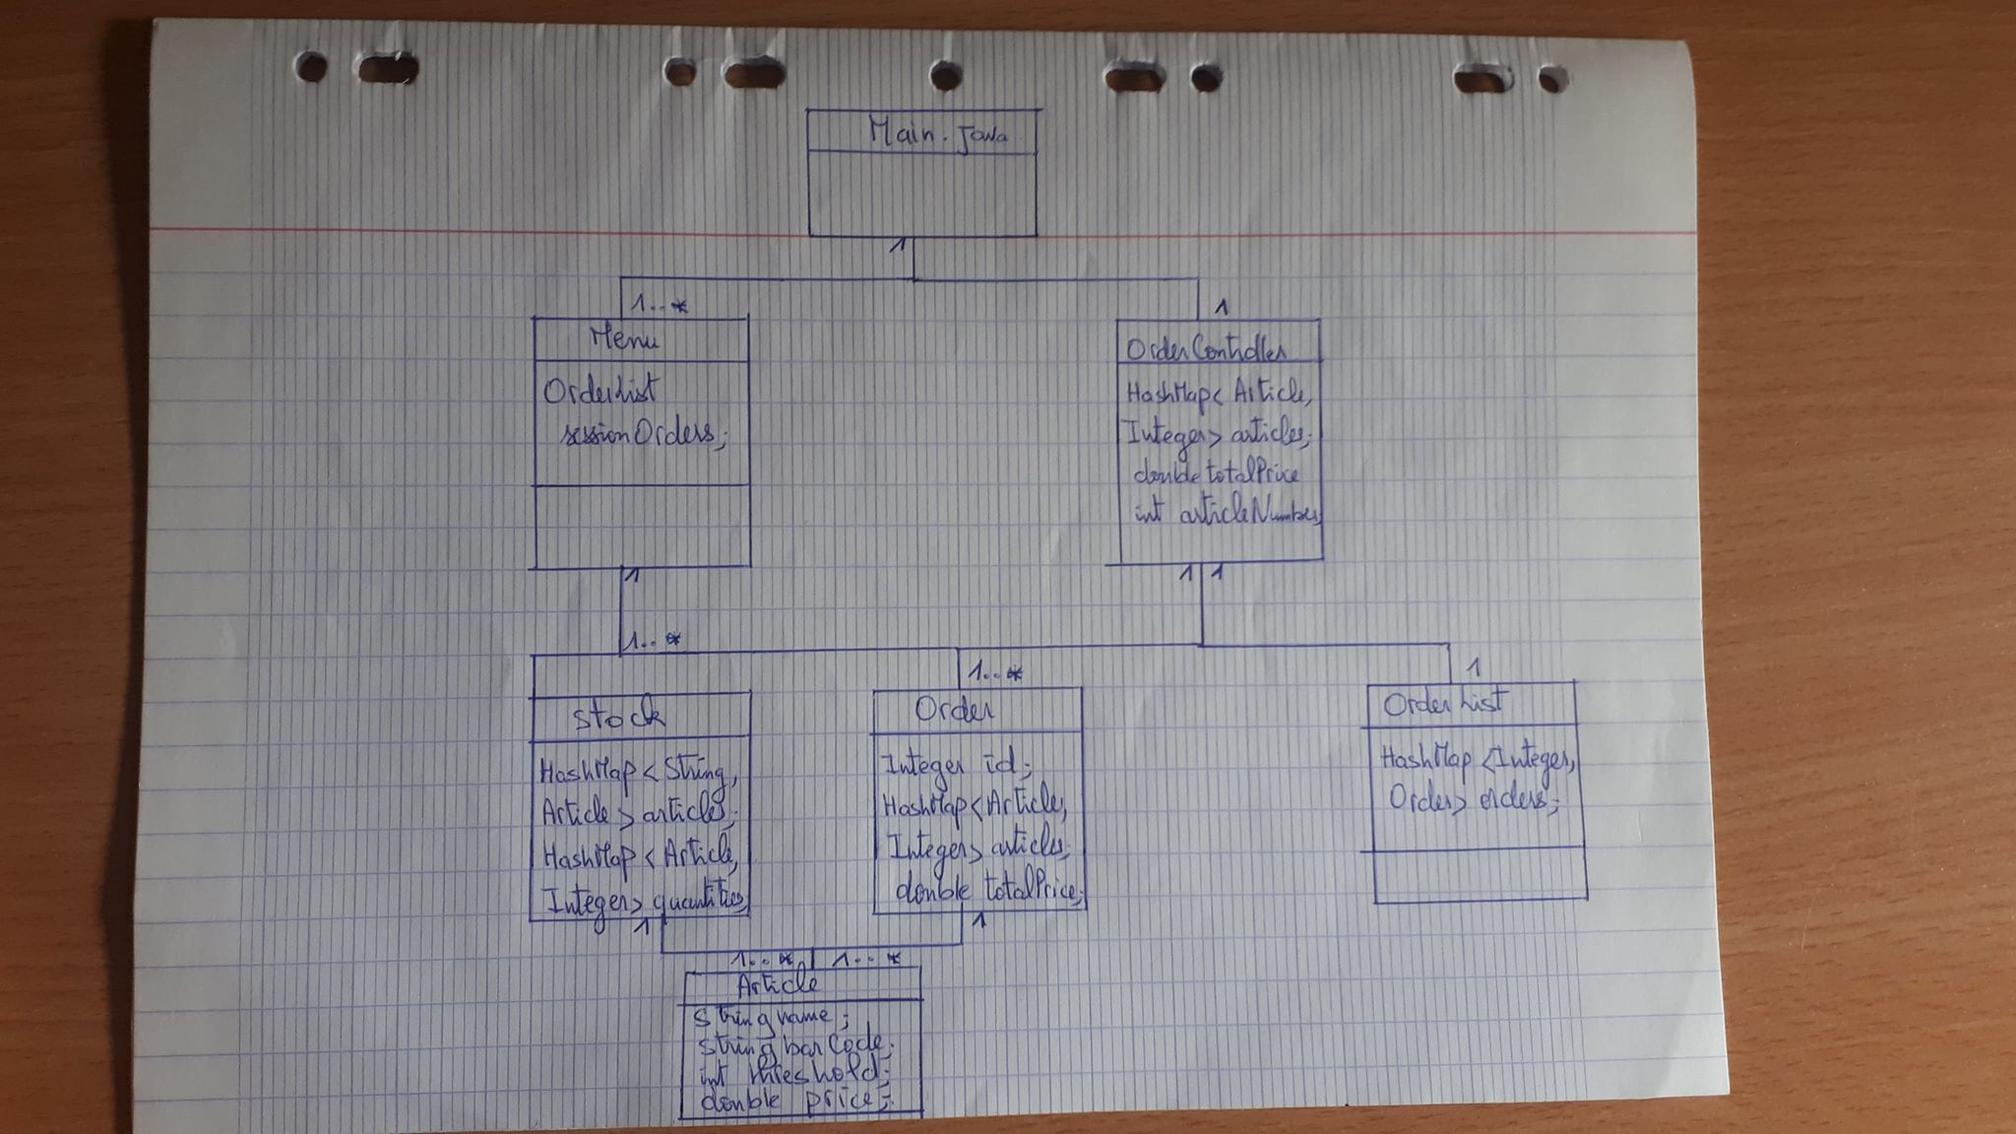 Main.Java
1
1..*
1
Menu
OrderList
sessionOrders;
OrderController
HashMap< Article,
Integer> articles;
double totalPrice
int articleNumber
1
1 1
1..*
1..*
1
stock
HashMap < String,
Article > articles;
HashMap < Article,
Integer> quantities
Order
Integer id;
HashMap < Article,
Integer> articles;
double totalPrice;
Order List
HashMap <Integer,
Order> orders;
1
1
1..*
1..*
Article
String name;
string barCode;
int threshold;
double price;